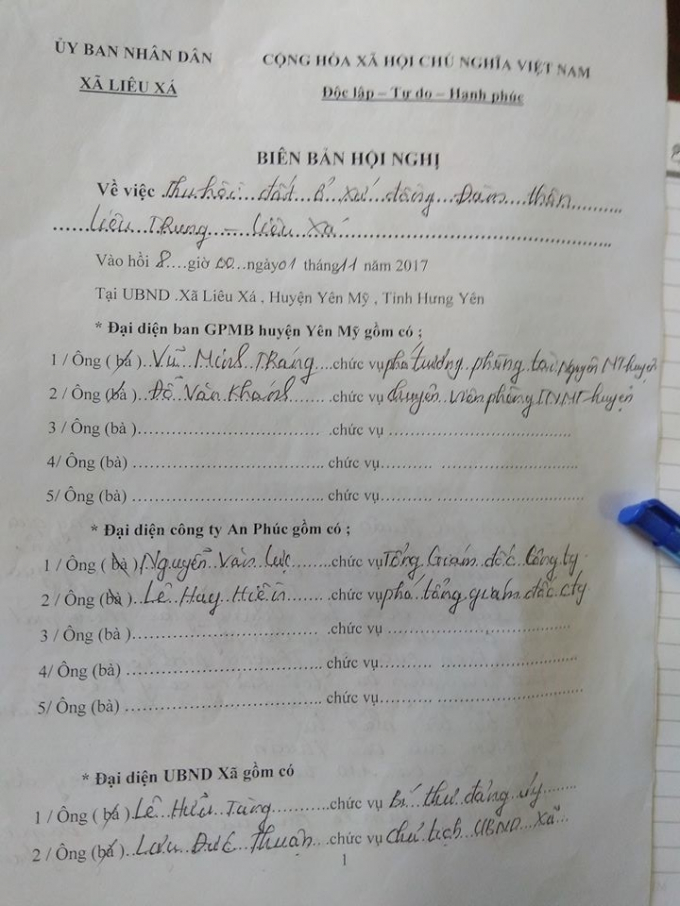 ỦY BAN NHÂN DÂN
XÃ LIÊU XÁ
CỘNG HÒA XÃ HỘI CHỦ NGHĨA VIỆT NAM
Độc lập – Tự do – Hạnh phúc
BIÊN BẢN HỘI NGHỊ
Về việc Thu hồi đất ở xứ đồng Đầm thôn
Liêu Trung – Liêu Xá
Vào hồi 8 giờ 00 ngày 01 tháng 11 năm 2017
Tại UBND .Xã Liêu Xá , Huyện Yên Mỹ , Tỉnh Hưng Yên
* Đại diện ban GPMB huyện Yên Mỹ gồm có ;
1 / Ông ( bà ) Vũ Minh Tráng chức vụ phó trưởng phòng tài Nguyên MT huyện
2 / Ông (bà ) Đỗ Văn Khánh chức vụ chuyên viên phòng TNMT huyện
3 / Ông (bà ) .chức vụ
4/ Ông (bà) chức vụ
5/ Ông (bà) chức vụ
* Đại diện công ty An Phúc gồm có ;
1 / Ông ( bà ) Nguyễn Văn Lực chức vụ Tổng Giám đốc Công ty
2 / Ông (bà ) Lê Huy Hiến chức vụ phó tổng giám đốc cty
3 / Ông (bà ) .chức vụ
4/ Ông (bà) chức vụ
5/ Ông (bà) chức vụ
* Đại diện UBND Xã gồm có
1 / Ông ( bà ) Lê Hữu Tùng chức vụ Bí thư đảng ủy
2 / Ông (bà ) Lưu Đức Thuận chức vụ chủ tịch UBND xã
1